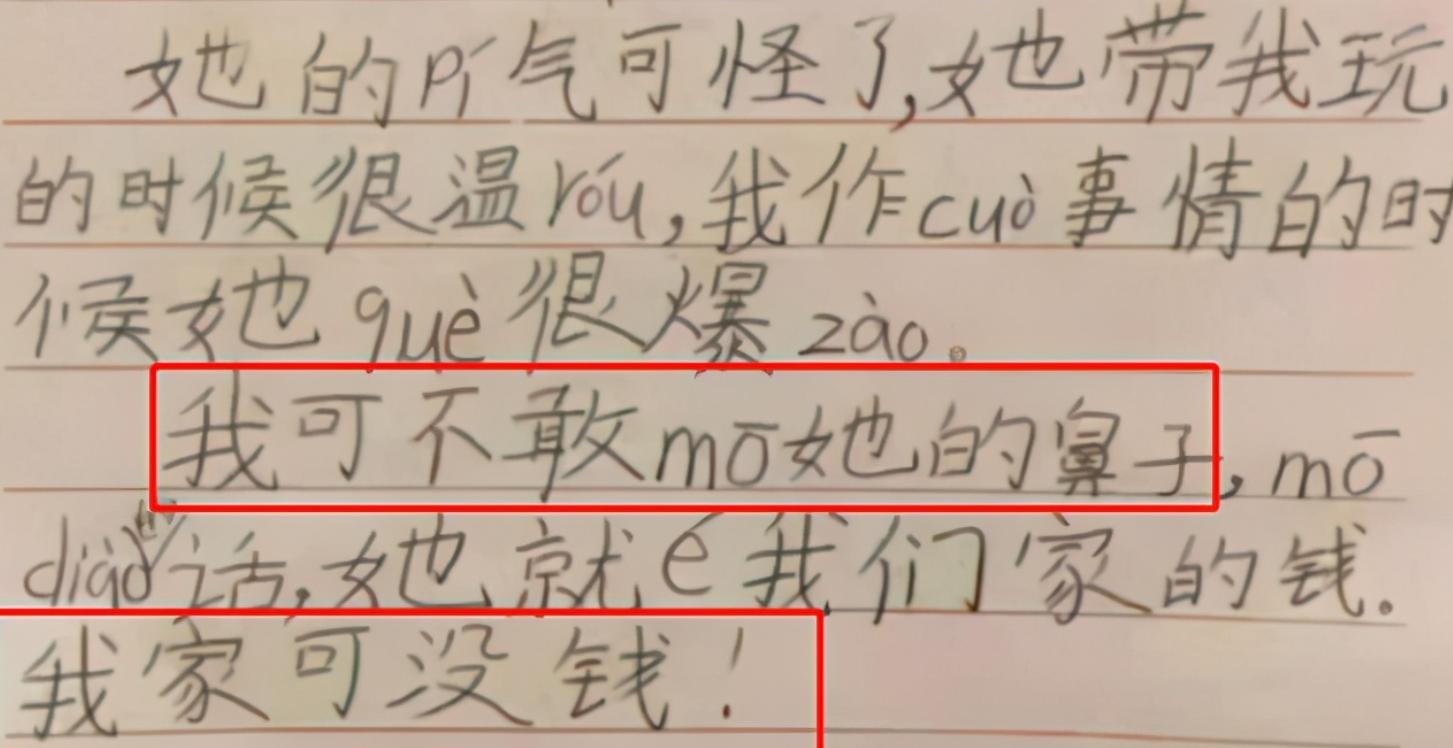 她的pí气可怪了,她带我玩
的时候很温róu,我作cuò事情的时
候她què很爆zào。
我可不敢mō她的鼻子,mō
diào的话,她就é我们家的钱。
我家可没钱！